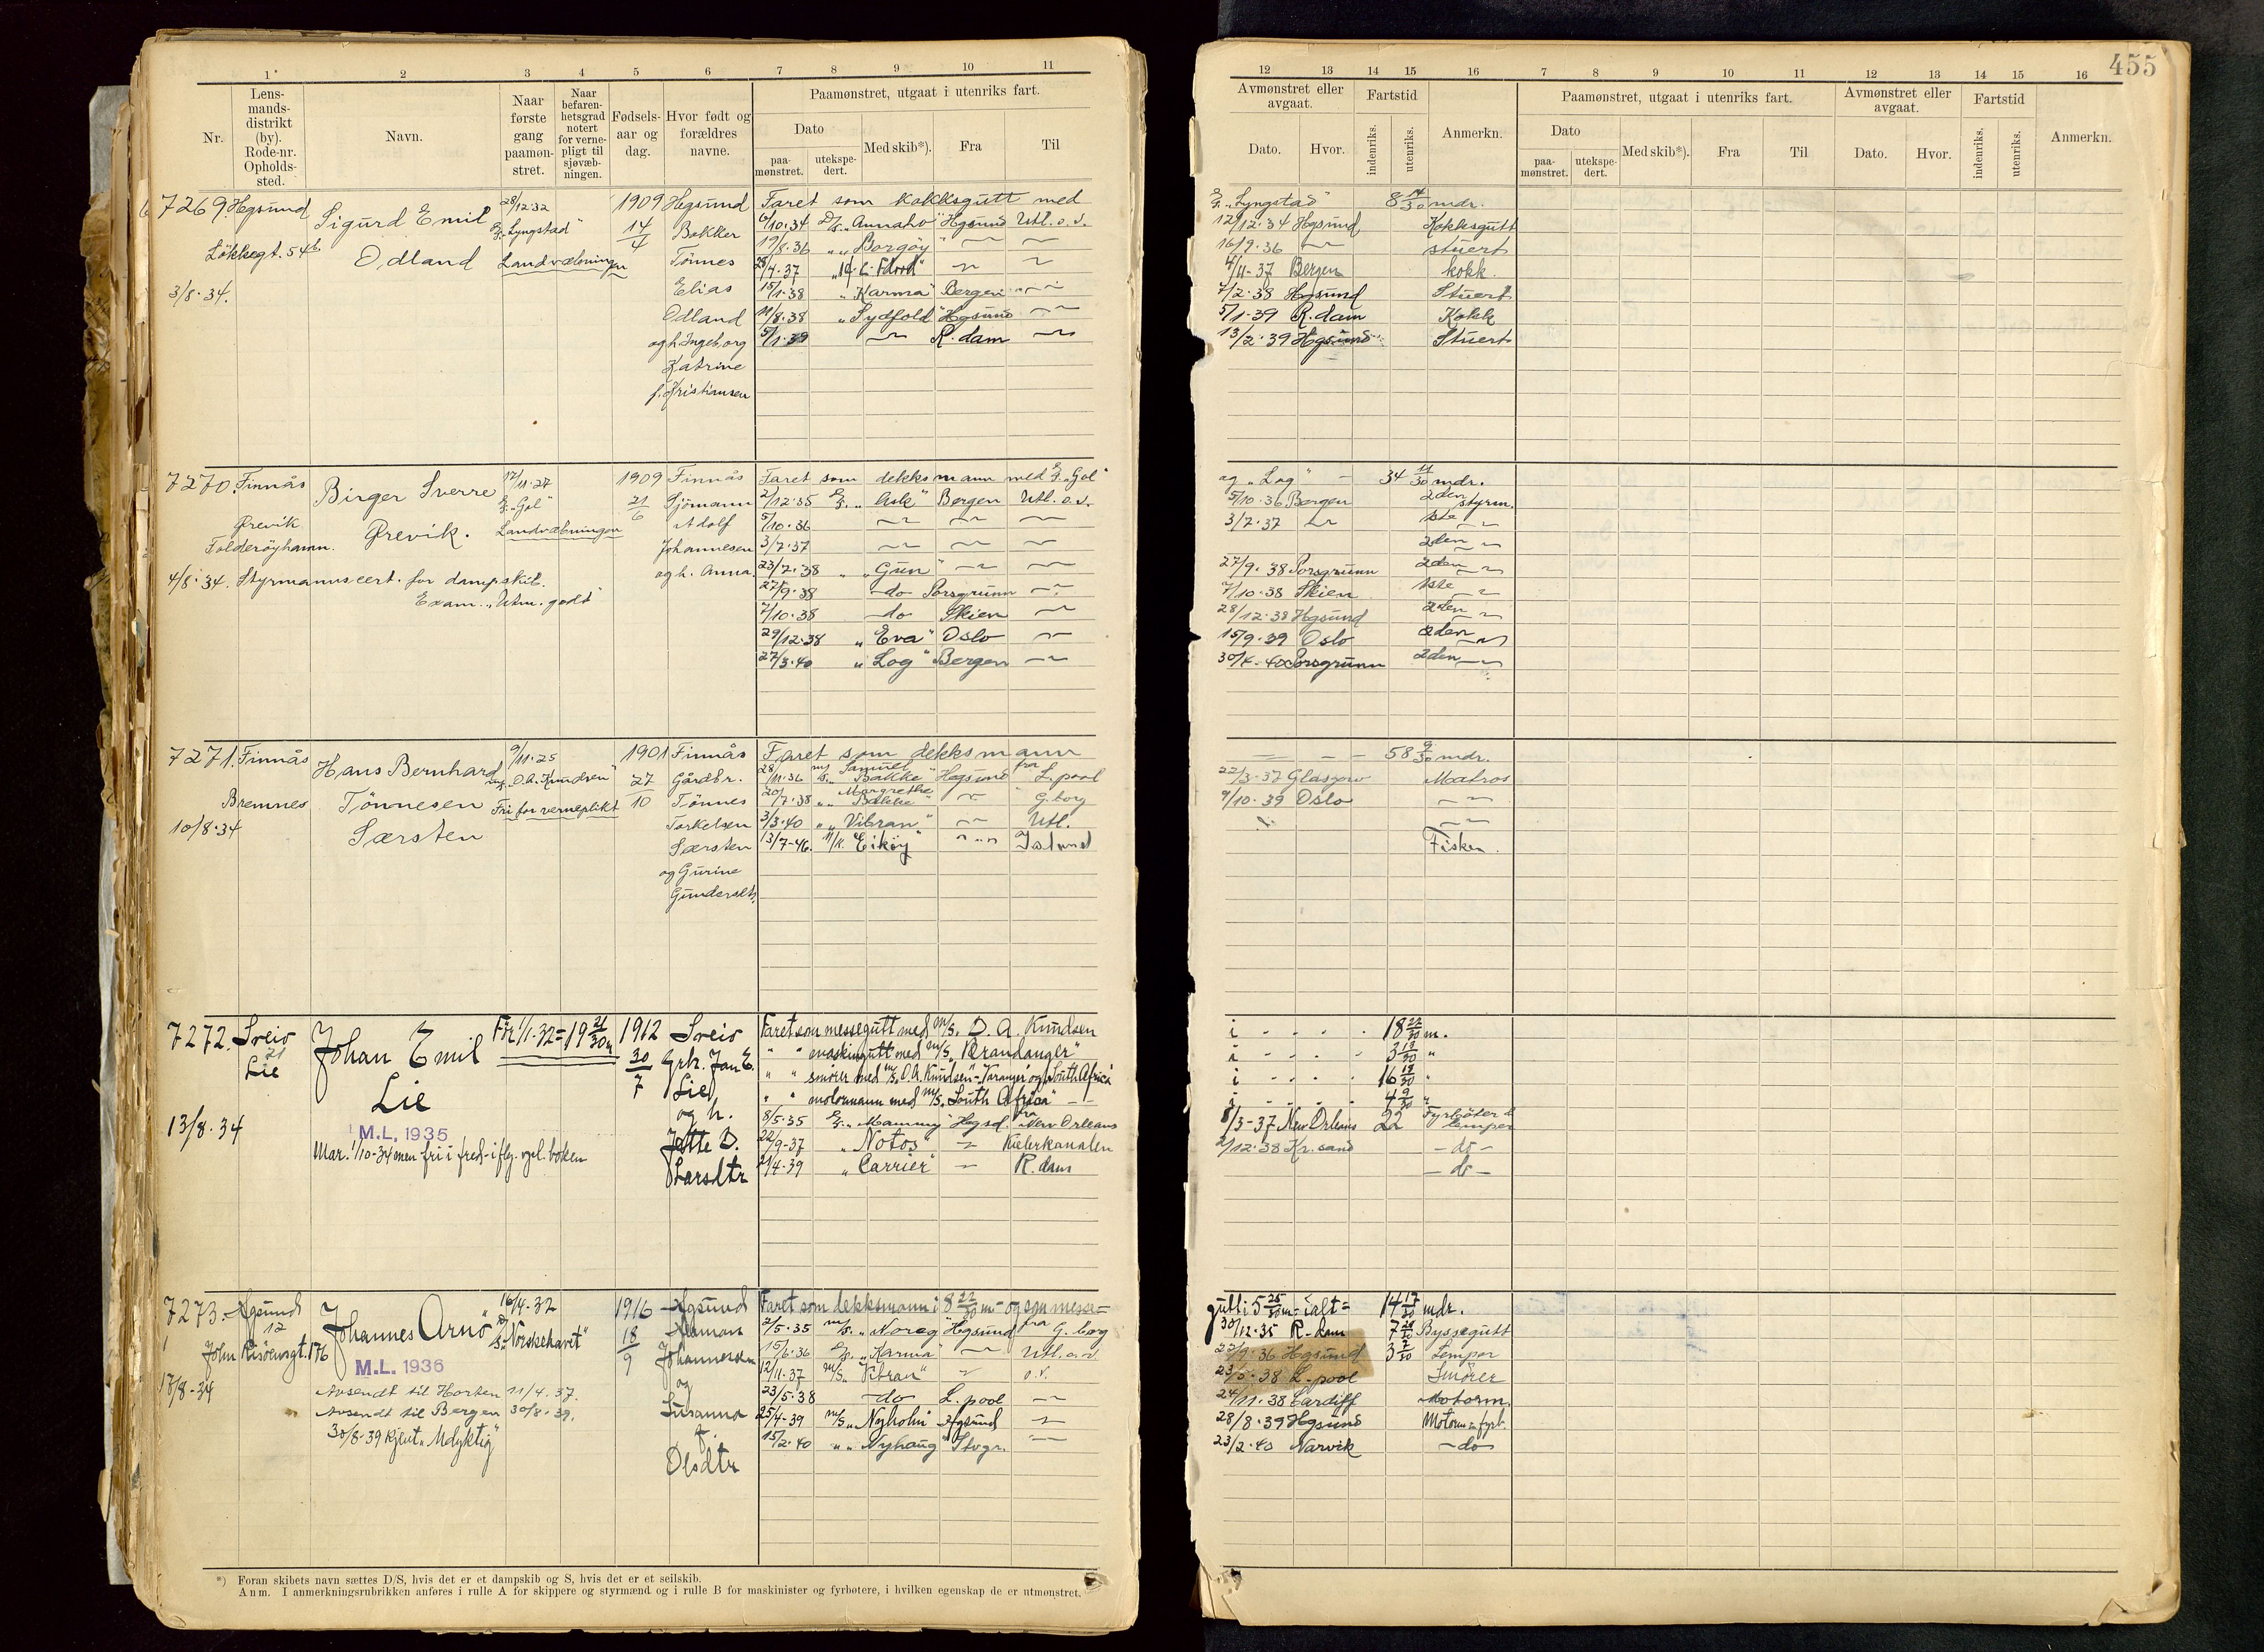 455
1 2 3 4 5 6 7 8 9 10 11
12 13 14 15 16 7 8 9 10 11 12 13 14 15 16
Nr.
Lens-
mands-
distrikt
(by).
Rode-nr.
Opholds-
sted.
Navn.
Naar
første
gang
paamøn-
stret.
Naar
befaren-
hetsgrad
notert
for verne-
pligt til
sjøvæb-
ningen.
Fødsels-
aar og
dag.
Hvor født og
forældres
navne.
Paamønstret, utgaat i utenriks fart.
Dato
paa-
mønstret.
utekspe-
dert.
Med skib*).
Fra
Til
Avmønstret eller
avgaat.
Dato.
Hvor.
Fartstid
indenriks.
utenriks.
Anmerkn.
Paamønstret, utgaat i utenriks fart.
Dato
paa-
mønstret.
utekspe-
dert.
Med skib*).
Fra
Til
Avmønstret eller
avgaat.
Dato.
Hvor.
Fartstid
indenriks.
utenriks.
Anmerkn.
7269. Hgsund
Løkkegt. 54b
3/8-34.
Sigurd Emil
Odland
28/12 32
"Lyngstad"
Landvæbningen
1909
14/4
Hgsund
Bakker
Tønnes
Elias
Odland
og h. Ingeborg
Katrine
f. Kristiansen
Faret som kokksgutt med "Lyngstad" 8 14/30 mdr.
6/10.34 D/S. "Annaho" Hgsund Utl. o.v. 12/12.34 Hgsund Kokksgutt
19/8.36 "Borgøy" 16/9.36 stuert
4/11-37 Bergen kokk.
15/1.38 "Karma" Bergen 7/2.38 Hgsund Stuert
11/8.38 "Sydfold" Hgsund 5/1.39 R.dam Kokk
5/1.39 R.dam 13/2.39 Hgsund Stuert
7270. Finnås
Grevik
Folderøyhamn.
4/8.34. Styrmannscert. for dampskib.
Exam. "Utm. godt"
Birger Sverre
Grevik.
17/11.27
"Gol"
Landvæbningen
1909
21/6
Finnås
Sjømann
Adolf
Johannesen
og h. Anna.
Faret som dekksmann med "Gol" og "Log" 34 11/30 mdr.
2/12.35 "Ask" Bergen Utl. o.v. 5/10.36 Bergen 2den styrm.
5/10.36 3/7.37 1ste
3/7.37 2den
23/7.38 "Gun" 27/9.38 Porsgrunn 2den
27/9.38 do Porsgrunn 7/10.38 Skien 1ste
7/10.38 do Skien 28/12.38 Hgsund 2den
29/12.38 "Eva" Oslo 15/9.39 Oslo 2den
27/3.40 "Log" Bergen 30/4-40 Porsgrunn 2den
7271. Finnås
Bremnes
10/8.34
Hans Bernhard
Tönnesen
Særsten
9/11.25
"O.A. Knudsen"
Fri for verneplikt
1901
27/10
Finnås
Gårdbr.
Tönnes
Torkelsen
Særsten
og Gurine
Gundersdtr.
Faret som dekksmann 58 9/30 mdr.
28/11.36 m/s. "Samuel Bakke" Hgsund fra L.pool 22/3-37 Glasgow Matros
20/7.38 "Margrethe Bakke" G.borg 9/10.39 Oslo
3/3.40 "Vibran" Utl.
13/7-46. M/K. "Eikøy" Island Fisker.
7272. Sveio
21
Lie
13/8.34
Johan Emil
Lie
M.L. 1935
Før 1/1.32 = 19 21/30 m
1912
30/7
Sveio
Grbr. Jan E.
Lie
og h.
Jette D.
Larsdtr
Faret som messegutt med m/s. O. A. Knudsen i 18 22/30 m.
" " maskingutt med m/s. "Brandanger" i 3 13/30 "
" " smører med m/s. O.A. Knudsen - Varanger og South Africa i 16 19/30 "
" " motormann med m/s. "South Africa" i 4 9/30 "
8/5.35 "Mammy" Hgsd. fra New Orleans 8/3-37 New Orleans 22 Fyrbøter & lemper
22/9-37 "Notos" Kielerkanalen 2/12.38 Kr.sand - do -
21/4.39 "Carrier" R.dam - do -
7273. Hgsund
12
John Risøensgt. 176
17/8-34
Johannes Arnö
M.L. 1936
Avsendt til Horten 11/4.37.
Avsendt til Bergen 30/8.39.
30/8.39 kjent "Udyktig"
16/4-32
"Norskehavet"
1916
18/9
Hgsund
Johannesen
og
Susanna
f.
Olsdtr
Faret som dekksmann i 8 22/30 m - og som messe=gutt i 5 25/30 m - ialt = 14 17/30 mdr.
2/5.35 m/s. "Noreg" Hgsund fra G.borg 30/12.35 R.dam Byssegutt
15/6.36 "Karma" Utl. o.v. 22/9.36 Hgsund Lemper
12/11-37 m/s. o.v. 23/5.38 L.pool Smører
23/5.38 do L.pool 24/11.38 Cardiff Motorm.
25/4-39 m/s. "Nyholm" Hgsund 28/8.39 Hgsund Motorm & fyrb.
15/2.40 "Nyhaug" Stvgr. 23/2.40 Narvik do
*) Foran skibets navn sættes D/S, hvis det er et dampskib og S, hvis det er et seilskib.
Anm. I anmerkningsrubrikken anføres i rulle A for skippere og styrmænd og i rulle B for maskinister og fyrbøtere, i hvilken egenskap de er utmønstret.